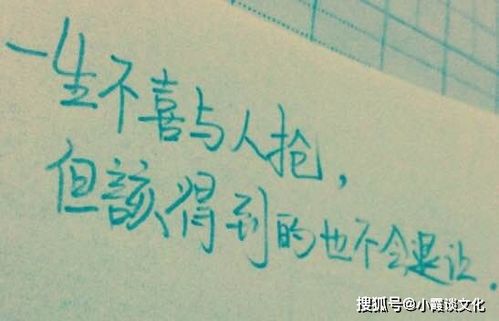 一生不喜与人抢，
但該得到的也不会退让.
搜狐号@小霞谈文化